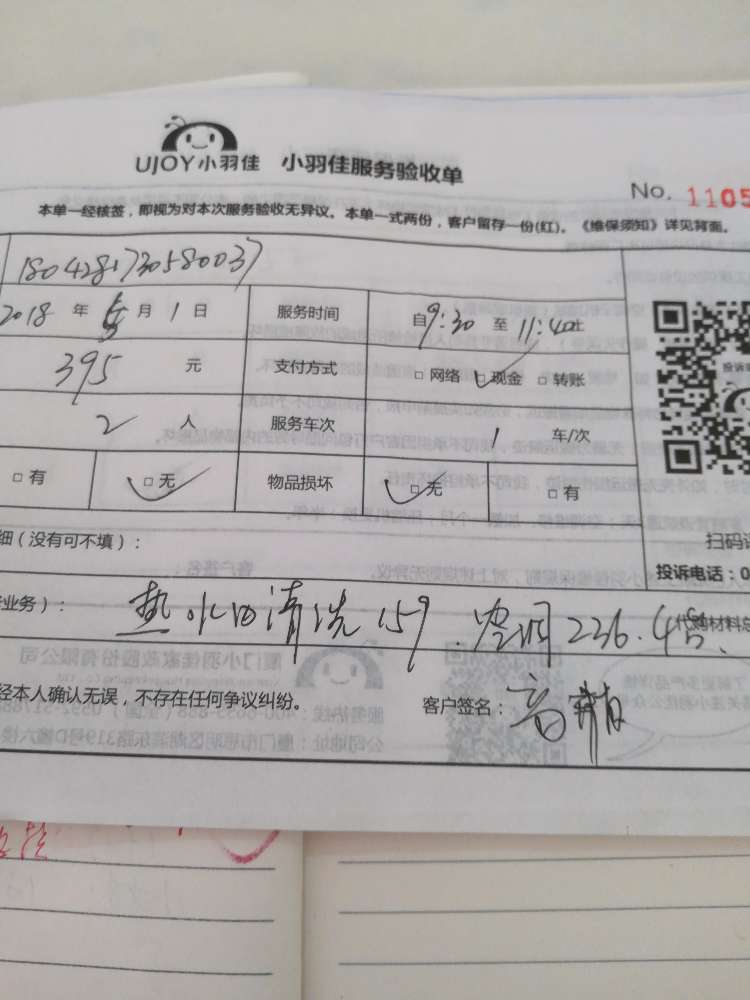 UJOY小羽佳 小羽佳服务验收单
No. 1105
本单一经核签，即视为对本次服务验收无异议。本单一式两份，客户留存一份(红)。《维保须知》详见背面。
1804281730580037
2018 年 5 月 1 日 服务时间 自9:30 至 11:40止
395 元 支付方式 □ 网络 □ 现金 □ 转账
2 人 服务车次 1 车/次
□ 有 □ 无 物品损坏 □ 无 □ 有
细（没有可不填）：
扫码
投诉电话：0
业务）： 热水口清洗159. 空调236.4台、 代购材料总
经本人确认无误，不存在任何争议纠纷。 客户签名：高